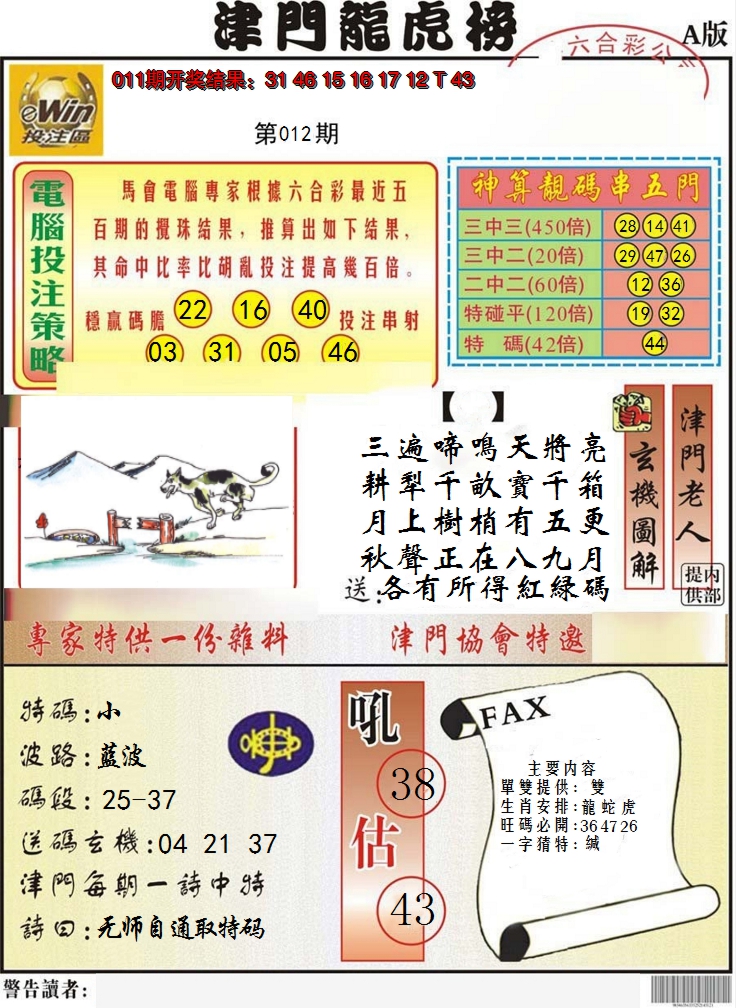 津門龍虎榜
A版
六合彩公
eWin
投注區
011期开奖结果：31 46 15 16 17 12 T 43
第012期
電腦投注策略
馬會電腦專家根據六合彩最近五
百期的攪珠结果，推算出如下结果，
其命中比率比胡亂投注提高幾百倍。
穩贏碼膽 22 16 40 投注串射
03 31 05 46
神算靚碼串五門
三中三(450倍) 28 14 41
三中二(20倍) 29 47 26
二中二(60倍) 12 36
特碰平(120倍) 19 32
特 碼(42倍) 44
【 】
三遍啼鳴天將亮
耕犁千畝寶千箱
月上樹梢有五更
秋聲正在八九月
送：各有所得紅綠碼
玄機圖解
津門老人
内部提供
專家特供一份雜料
津門協會特邀
特碼：小
波路：藍波
碼段：25-37
送碼玄機：04 21 37
津門每期一詩中特
詩曰：无师自通取特码
吼
38
估
43
FAX
主要内容
單雙提供：雙
生肖安排：龍蛇虎
旺碼必開：36 47 26
一字猜特：缄
警告讀者：